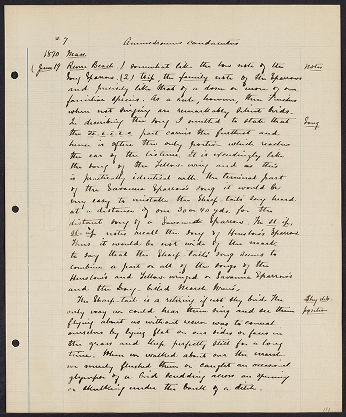 # 7 Ammodramus caudacutus
1890 Mass.
(June 19 Revere Beach.) somewhat like the low note of the Notes
Song Sparrow. (2) tsip, the family note of the Sparrows
and precisely like that of a dozen or more of our
familiar species. As a rule, however, these Finches
when not singing are remarkably silent birds.
In describing the song I omitted to state that Song
the part carries the furthest and
hence is often the only portion which reaches
the ear of the listener. It is exceedingly like
the song of the Yellow-wing and as this
is practically identical with the terminal part
of the Savanna Sparrow's song it would be
very easy to mistake the Sharp-tail's song heard
at a distance of over 30 or 40 yds. for the
distant song of a Savanna Sparrow. The
notes recall the song of Henslow's Sparrow.
Thus it would be not wide of the mark
to say that the Sharp-tail's song seems to
combine a part or all of the songs of the
Henslow's and Yellow-winged or Savanna Sparrows
and the Long-billed Marsh Wren's.
The Sharp-tail is a retiring if not shy bird. The Shy dis-
only way we could hear them sing and see them position
flying about us without reserve was to conceal
ourselves by lying flat on our sides or faces in
the grass and keep perfectly still for a long
time. When we walked about over the marsh
we merely flushed them or caught an occasional
glimpse of a bird scudding across an opening
or skulking under the bank of a ditch.